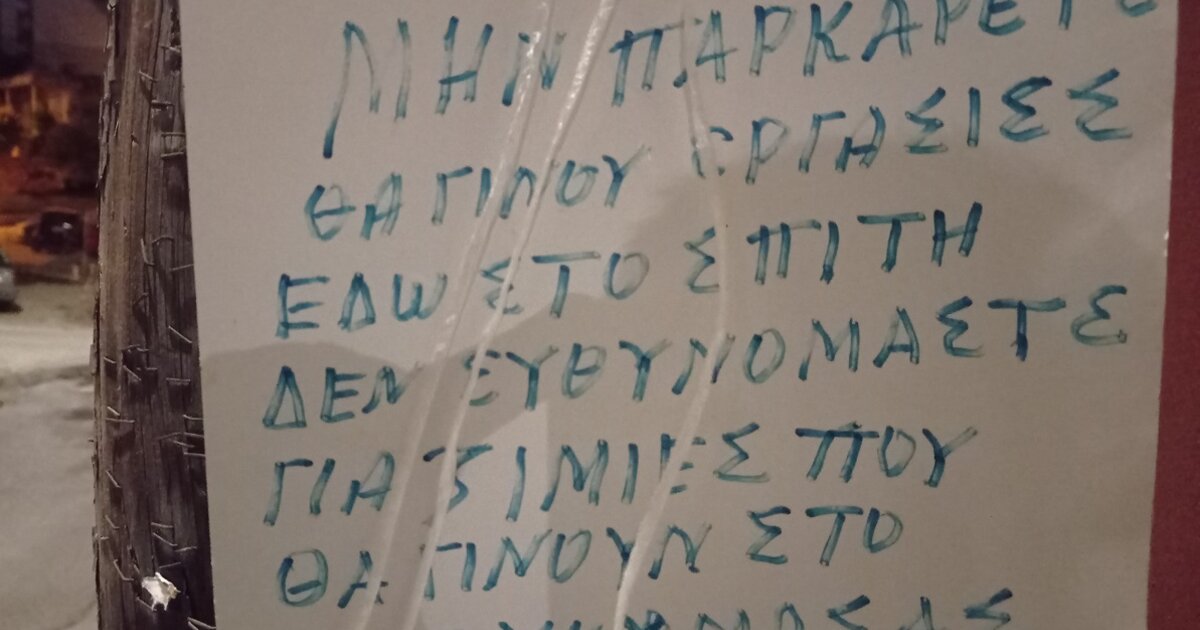 ΜΗΝ ΠΑΡΚΑΡΕΤΕ
ΘΑ ΓΙΝΟΥ ΕΡΓΑΣΙΕΣ
ΕΔΩ ΣΤΟ ΣΠΙΤΗ
ΔΕΝ ΕΥΘΥΝΟΜΑΣΤΕ
ΓΙΑ ΖΙΜΙΕΣ ΠΟΥ
ΘΑ ΓΙΝΟΥΝ ΣΤΟ